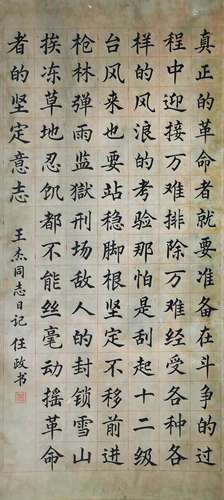 真正的革命者就要准备在斗争的过
程中迎接万难排除万难经受各种各
样的风浪的考验那怕是刮起十二级
台风来也要站稳脚根坚定不移前进
枪林弹雨监獄刑场敌人的封锁雪山
挨冻草地忍饥都不能丝毫动摇革命
者的坚定意志
王杰同志日记 任政书